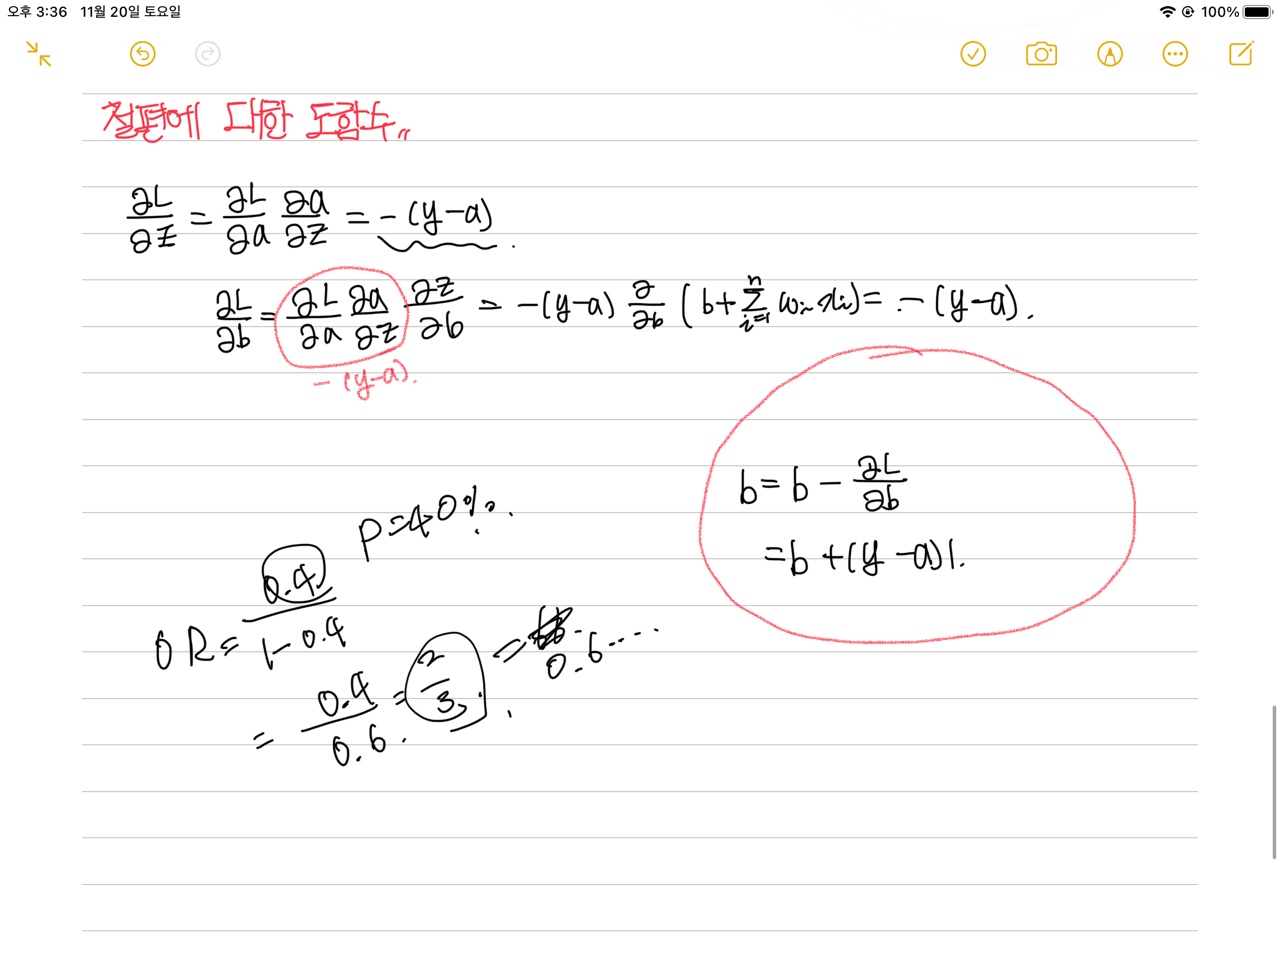 오후 3:36 11월 20일 토요일 100%
절편에 대한 도함수〃
∂L/∂z = ∂L/∂a ∂a/∂z = -(y-a).
∂L/∂b = ∂L/∂a ∂a/∂z ∂z/∂b = -(y-a) ∂/∂b (b+∑ⁿᵢ₌₁ wᵢxᵢ) = -(y-a).
-(y-a).
b = b - ∂L/∂b
= b + (y-a)1.
P=40%.
OR = 0.4/1-0.4
= 0.4/0.6. = 2/3. = 0.6....